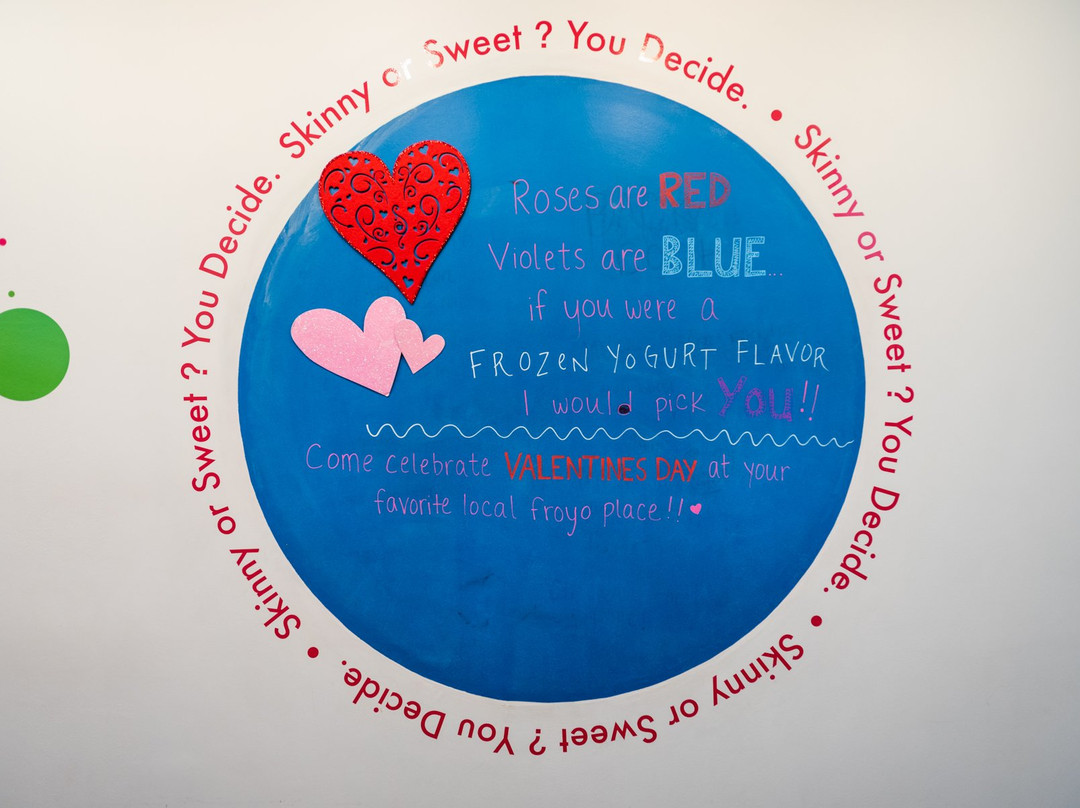 Skinny or Sweet ? You Decide. • Skinny or Sweet ? You Decide. • Skinny or Sweet ? You Decide. • Skinny or Sweet ? You Decide.
Roses are RED
Violets are BLUE...
if you were a
FROZEN YOGURT FLAVOR
I would pick You!!
Come celebrate VALENTINES DAY at your
favorite local froyo place!! ♥